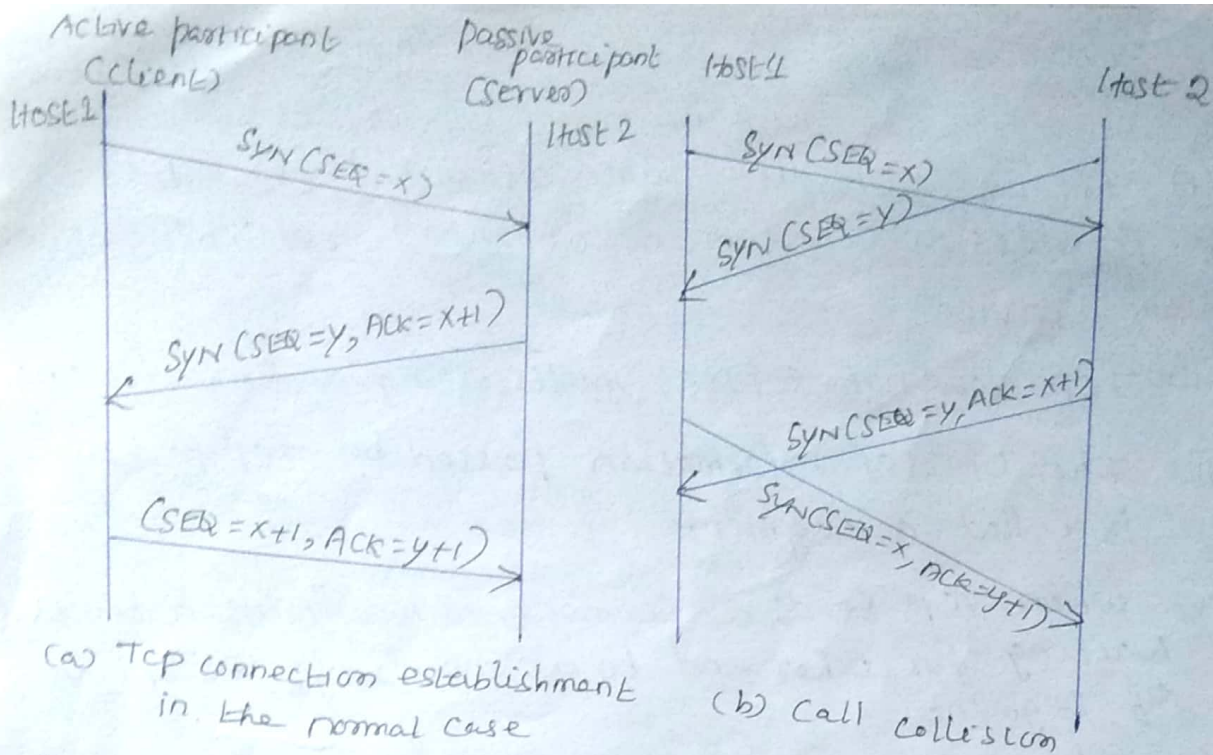 Active participant
(Client)
Host 1
Passive
participant
(Server)
Host 2
SYN (SEQ = x)
SYN (SEQ = y, ACK = x+1)
(SEQ = x+1, ACK = y+1)
(a) Tcp connection establishment
in the normal case
Host 1
Host 2
SYN (SEQ = x)
SYN (SEQ = y)
SYN (SEQ = y, ACK = x+1)
SYN (SEQ = x, ACK = y+1)
(b) Call collision